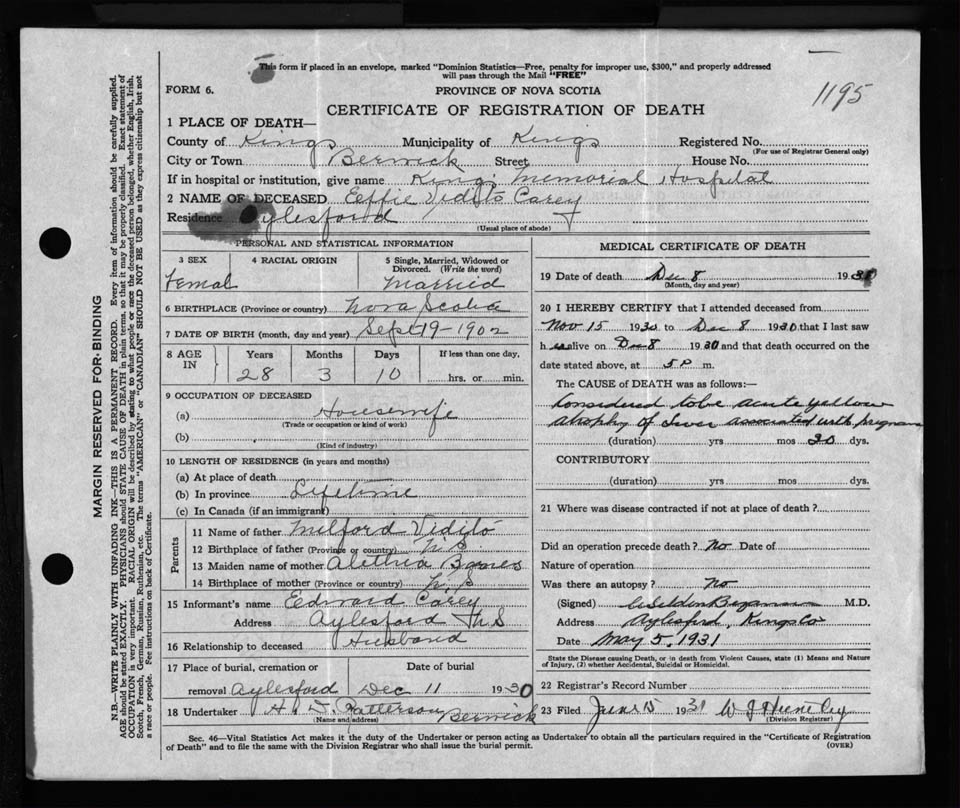 This form if placed in an envelope, marked "Dominion Statistics—Free, penalty for improper use, $300," and properly addressed
will pass through the Mail "FREE"
1195
FORM 6.
PROVINCE OF NOVA SCOTIA
CERTIFICATE OF REGISTRATION OF DEATH
1 PLACE OF DEATH—
County of Kings Municipality of Kings Registered No.
(For use of Registrar General only)
City or Town Berwick Street House No.
If in hospital or institution, give name Kings Memorial Hospital
2 NAME OF DECEASED Effie Vidito Carey
Residence Aylesford
(Usual place of abode)
MARGIN RESERVED FOR BINDING
N.B.—WRITE PLAINLY WITH UNFADING INK—THIS IS A PERMANENT RECORD. Every item of information should be carefully supplied.
AGE should be stated EXACTLY. PHYSICIANS should STATE CAUSE OF DEATH in plain terms, so that it may be properly classified. Exact statement of
OCCUPATION is very important. RACIAL ORIGIN will be described by stating to what people or race the deceased person belonged, whether English, Irish,
Scotch, French, German, Russian, Ruthenian, etc. The terms "AMERICAN" or "CANADIAN" SHOULD NOT BE USED as they express citizenship but not
a race or people. See instructions on back of Certificate.
PERSONAL AND STATISTICAL INFORMATION
3 SEX
Femal
4 RACIAL ORIGIN
5 Single, Married, Widowed or
Divorced. (Write the word)
Married
6 BIRTHPLACE (Province or country) Nova Scotia
7 DATE OF BIRTH (month, day and year) Sept 19-1902
8 AGE IN
Years Months Days If less than one day,
28 3 10 hrs. or min.
9 OCCUPATION OF DECEASED
(a) Housewife
(Trade or occupation or kind of work)
(b)
(Kind of industry)
10 LENGTH OF RESIDENCE (in years and months)
(a) At place of death
(b) In province Lifetime
(c) In Canada (if an immigrant)
Parents
11 Name of father Milford Vidito
12 Birthplace of father (Province or country) N.S.
13 Maiden name of mother
14 Birthplace of mother (Province or country) N.S.
15 Informant's name Edward Carey
Address Aylesford N.S
16 Relationship to deceased Husband
17 Place of burial, cremation or Date of burial
removal Aylesford Dec 11 1930
18 Undertaker Patterson Berwick
(Name and address)
MEDICAL CERTIFICATE OF DEATH
19 Date of death Dec 8 1930
(Month, day and year)
20 I HEREBY CERTIFY that I attended deceased from
Nov 15 1930 to Dec 8 1930 that I last saw
h er alive on Dec 8 1930 and that death occurred on the
date stated above, at 5 P m.
The CAUSE of DEATH was as follows:—
Considered to be acute yellow
atrophy of liver associated with
(duration) yrs mos 20 dys.
CONTRIBUTORY
(duration) yrs mos dys.
21 Where was disease contracted if not at place of death?
Did an operation precede death? No Date of
Nature of operation
Was there an autopsy? no
(Signed) M.D.
Address Aylesford, Kings Co
Date May 5, 1931
State the Disease causing Death, or in death from Violent Causes, state (1) Means and Nature
of Injury, (2) whether Accidental, Suicidal or Homicidal.
22 Registrar's Record Number
23 Filed June 15 1931
(Division Registrar)
Sec. 46—Vital Statistics Act makes it the duty of the Undertaker or person acting as Undertaker to obtain all the particulars required in the "Certificate of Registration
of Death" and to file the same with the Division Registrar who shall issue the burial permit.
(OVER)